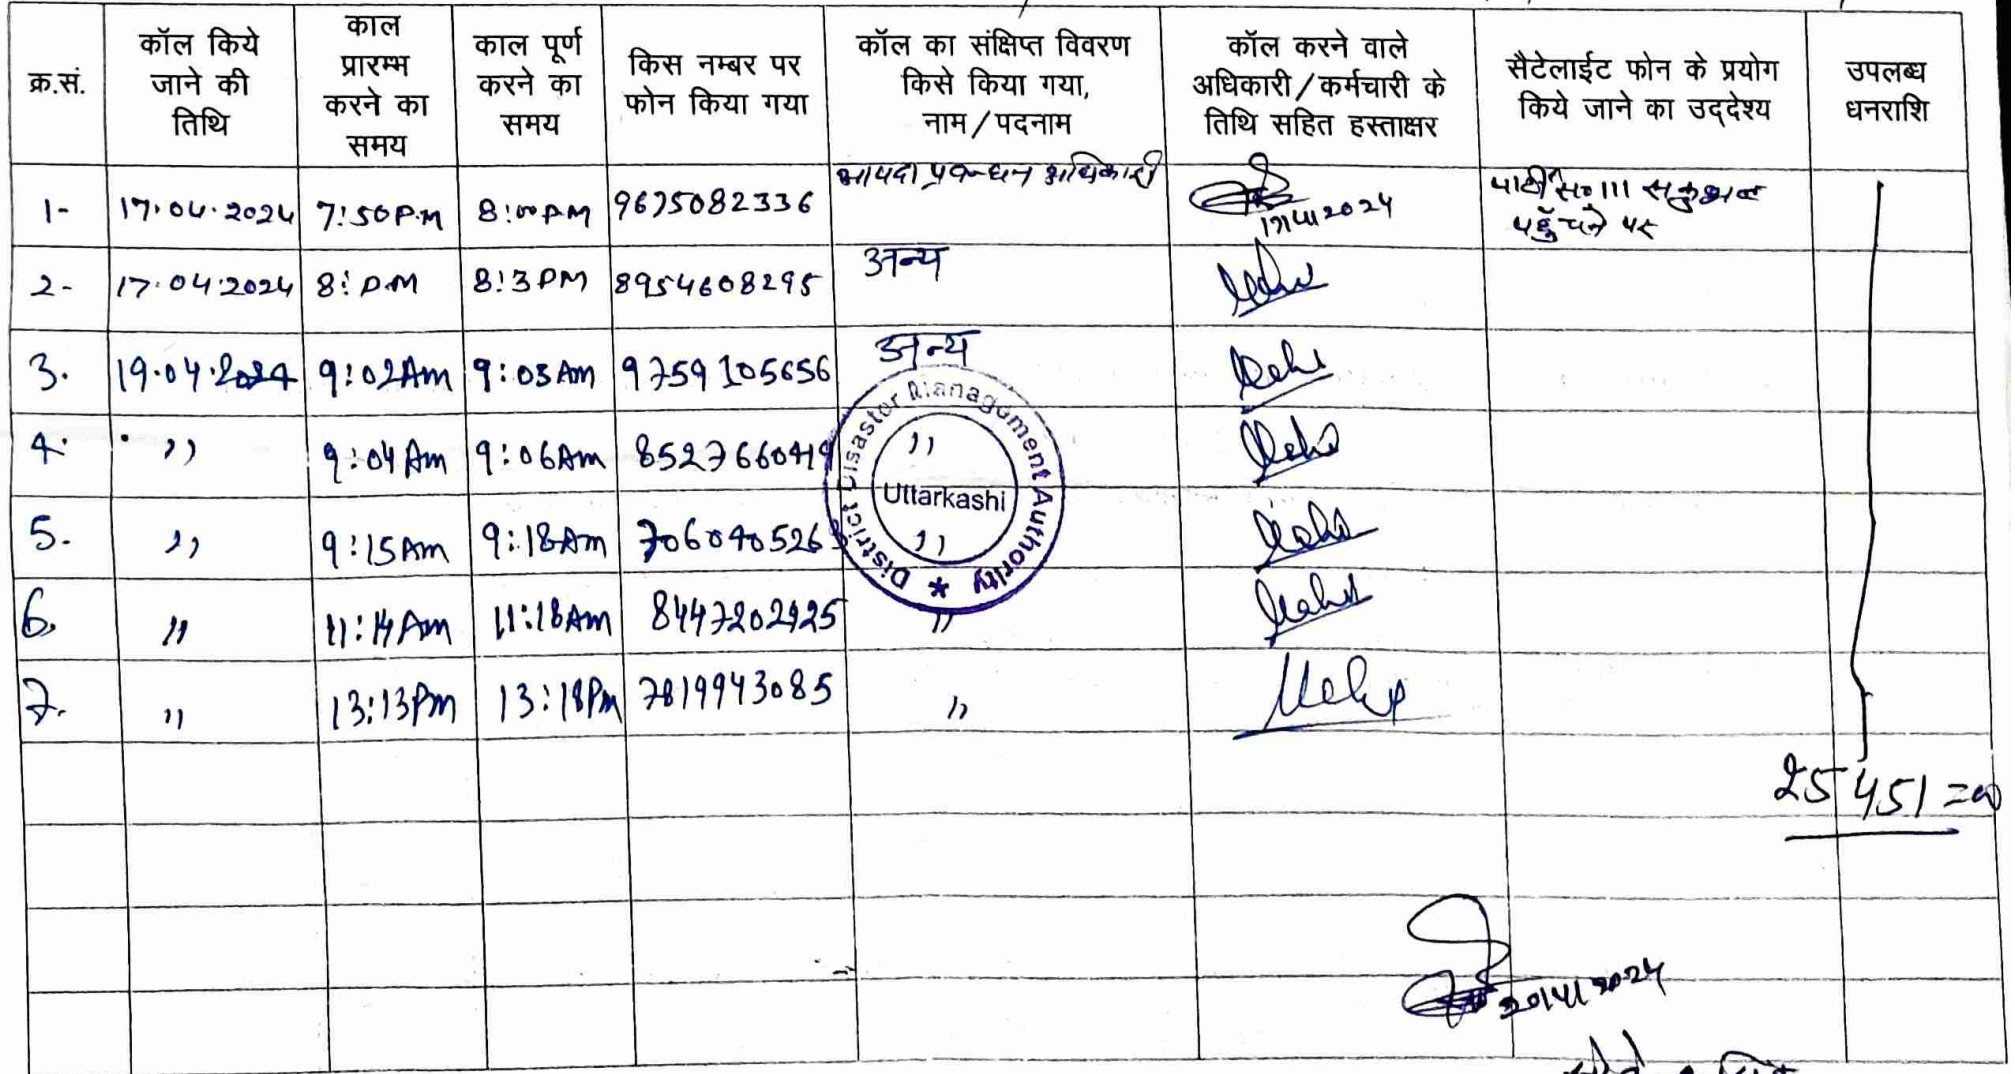 क्र.सं. कॉल किये जाने की तिथि काल प्रारम्भ करने का समय काल पूर्ण करने का समय किस नम्बर पर फोन किया गया कॉल का संक्षिप्त विवरण किसे किया गया, नाम/पदनाम कॉल करने वाले अधिकारी/कर्मचारी के तिथि सहित हस्ताक्षर सैटेलाईट फोन के प्रयोग किये जाने का उद्देश्य उपलब्ध धनराशि
1- 17.04.2024 7:50P.M 8:00PM 9675082336 आपदा प्रबन्धन अधिकारी 17/4/2024 पार्टी सं० 111 सकुशल पहुँचने पर
2- 17.04.2024 8: P.M 8:3PM 8954608295 अन्य
3. 19.04.2024 9:02Am 9:03Am 9759105656 अन्य
4. ,, 9:04Am 9:06Am 8527660419 ,,
5. ,, 9:15Am 9:18Am 7060405263 ,,
6. ,, 11:14Am 11:18Am 8447202925 ,,
7. ,, 13:13Pm 13:18Pm 7819943085 ,,
District Disaster Management Authority *
Uttarkashi
25451=00
20/4/2024